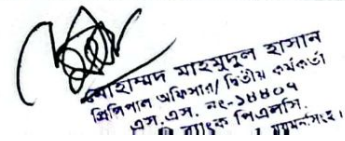 মোহাম্মদ মাহমুদুল হাসান
প্রিন্সিপাল অফিসার/ দ্বিতীয় কর্মকর্তা
এস.এস. নং-১৪৪০৭
ব্যাংক পিএলসি.
ময়মনসিংহ।